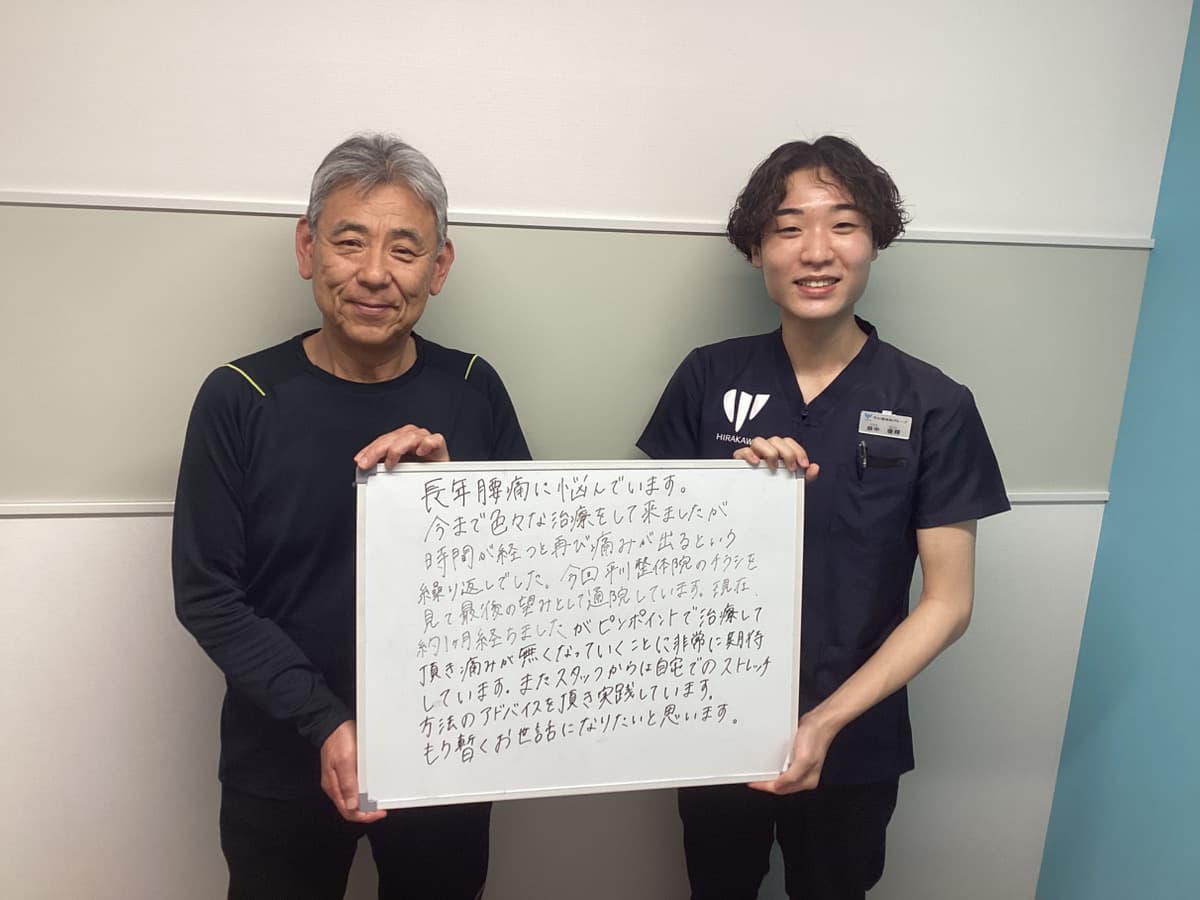 HIRAKAW
長年腰痛に悩んでいます。
今まで色々な治療をして来ましたが
時間が経つと再び痛みが出るという
繰り返しでした。今回平川整体院のチラシを
見て最後の望みとして通院しています。現在、
約1ヶ月経ちましたがピンポイントで治療して
頂き痛みが無くなっていくことに非常に期待
しています。またスタッフからは自宅でのストレッチ
方法のアドバイスを頂き実践しています。
もう暫くお世話になりたいと思います。